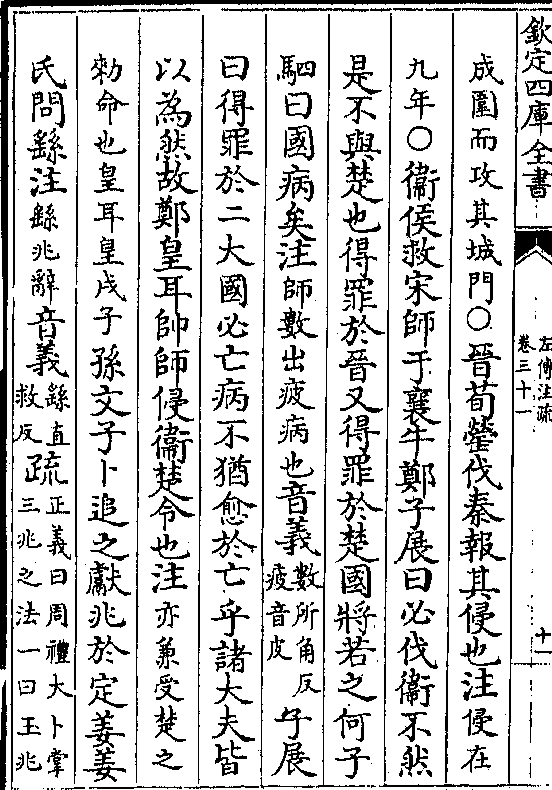 欽定四庫全書
左傳注疏
卷三十一
十一
成圍而攻其城門○晉荀罃伐秦報其侵也注侵在
九年○衞侯救宋師于襄牛鄭子展曰必伐衞不然
是不與楚也得罪於晉又得罪於楚國將若之何子
駟曰國病矣注師數出疲病也音義數所角反
疲音皮子展
曰得罪於二大國必亡病不猶愈於亡乎諸大夫皆
以為然故鄭皇耳帥師侵衞楚令也注亦兼受楚之
勑命也皇耳皇戌子孫文子卜追之獻兆於定姜姜
氏問繇注繇兆辭音義繇直
救反疏正義曰周禮大卜掌
三兆之法一曰玉兆